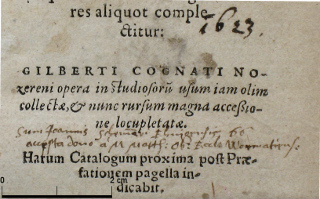 res aliquot comple
ctitur:
1623
GILBERTI COGNATI No-
zereni opera in studiosorũ usum iam olim
collectæ, & nunc rursum magna accessio-
ne locupletatæ.
Sum Joannis
Harum Catalogum proxima post Præ-
fationem pagella in-
dicabit.
0 2 cm